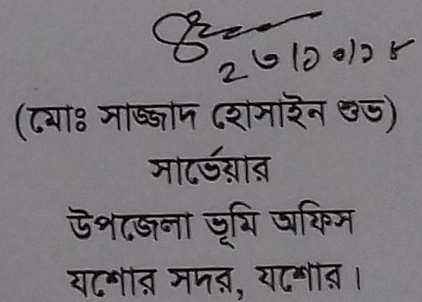 ২৩/১০/১৮
(মোঃ সাজ্জাদ হোসাইন শুভ)
সার্ভেয়ার
উপজেলা ভূমি অফিস
যশোর সদর, যশোর।